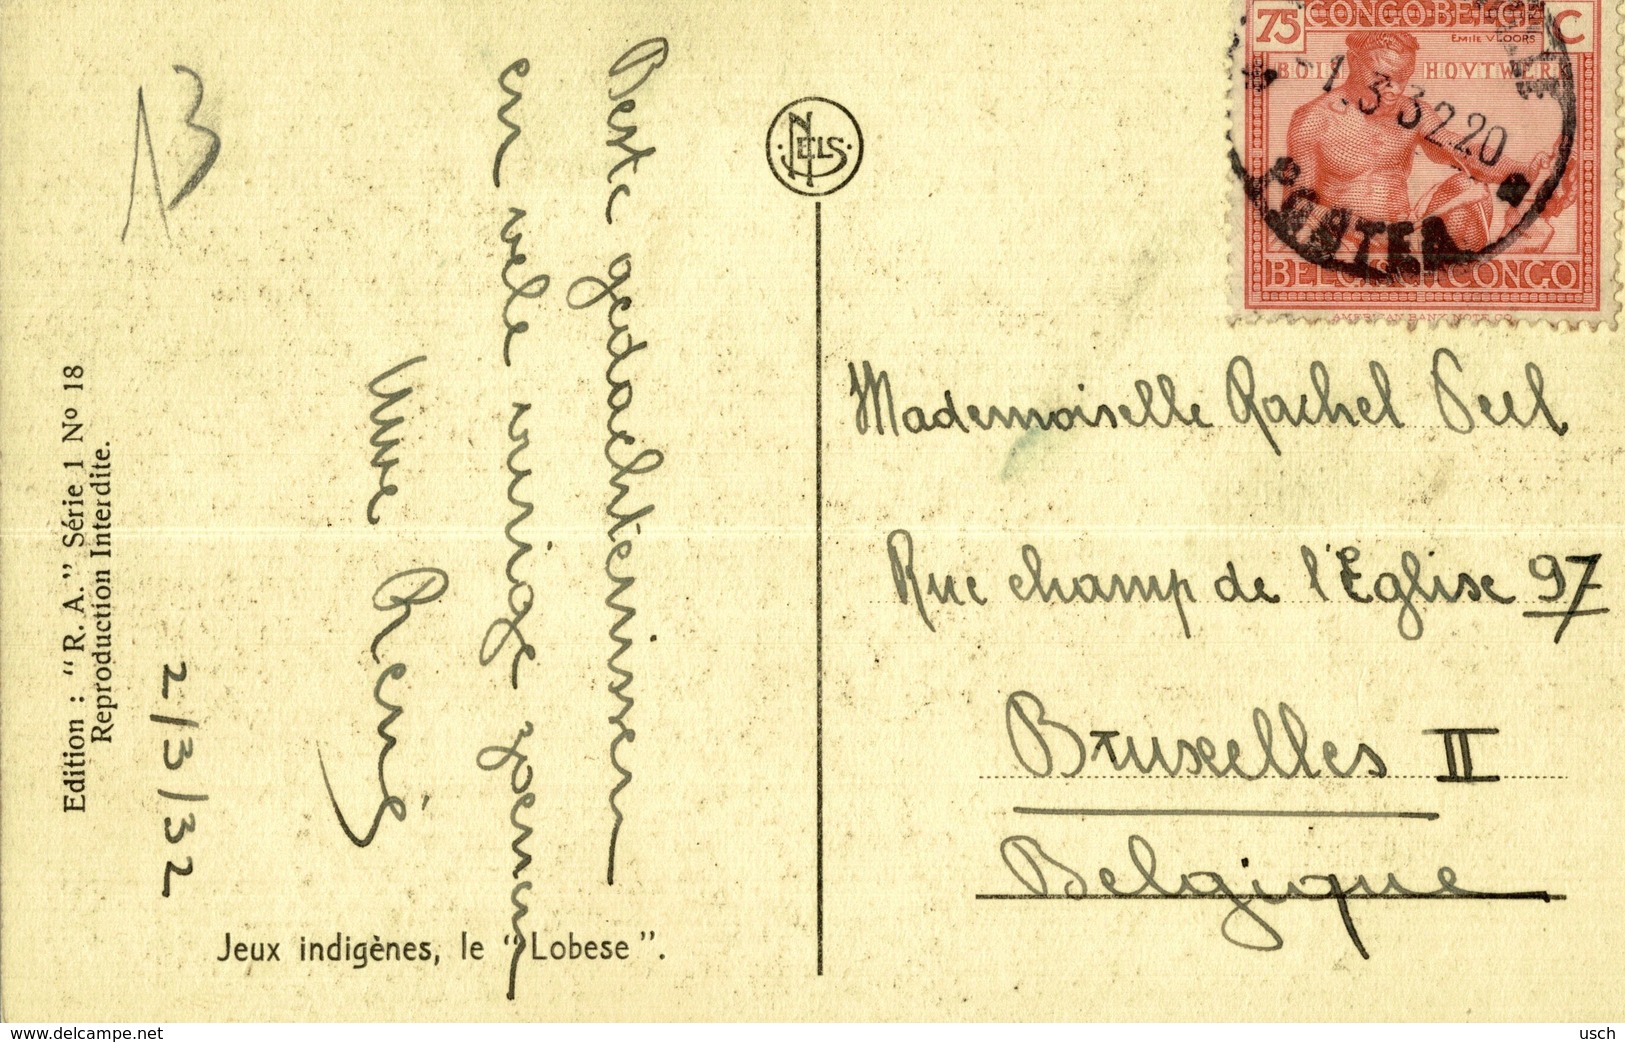 Beste gedachtenissen
en vele vurige zoenen
Uwe René
2/3/32
13
Edition : "R. A." Série 1 Nº 18
Reproduction Interdite.
Jeux indigènes, le "Lobese".
NELS
75 CONGO BELGE C
EMILE VLOORS
BOIS HOVTWERK
1.3 32 20
POSTEA
BELGISCH CONGO
AMERICAN BANK NOTE CO
Mademoiselle Rachel
Rue champ de l'Eglise 97
Bruxelles II
Belgique
delcampe.net
usch